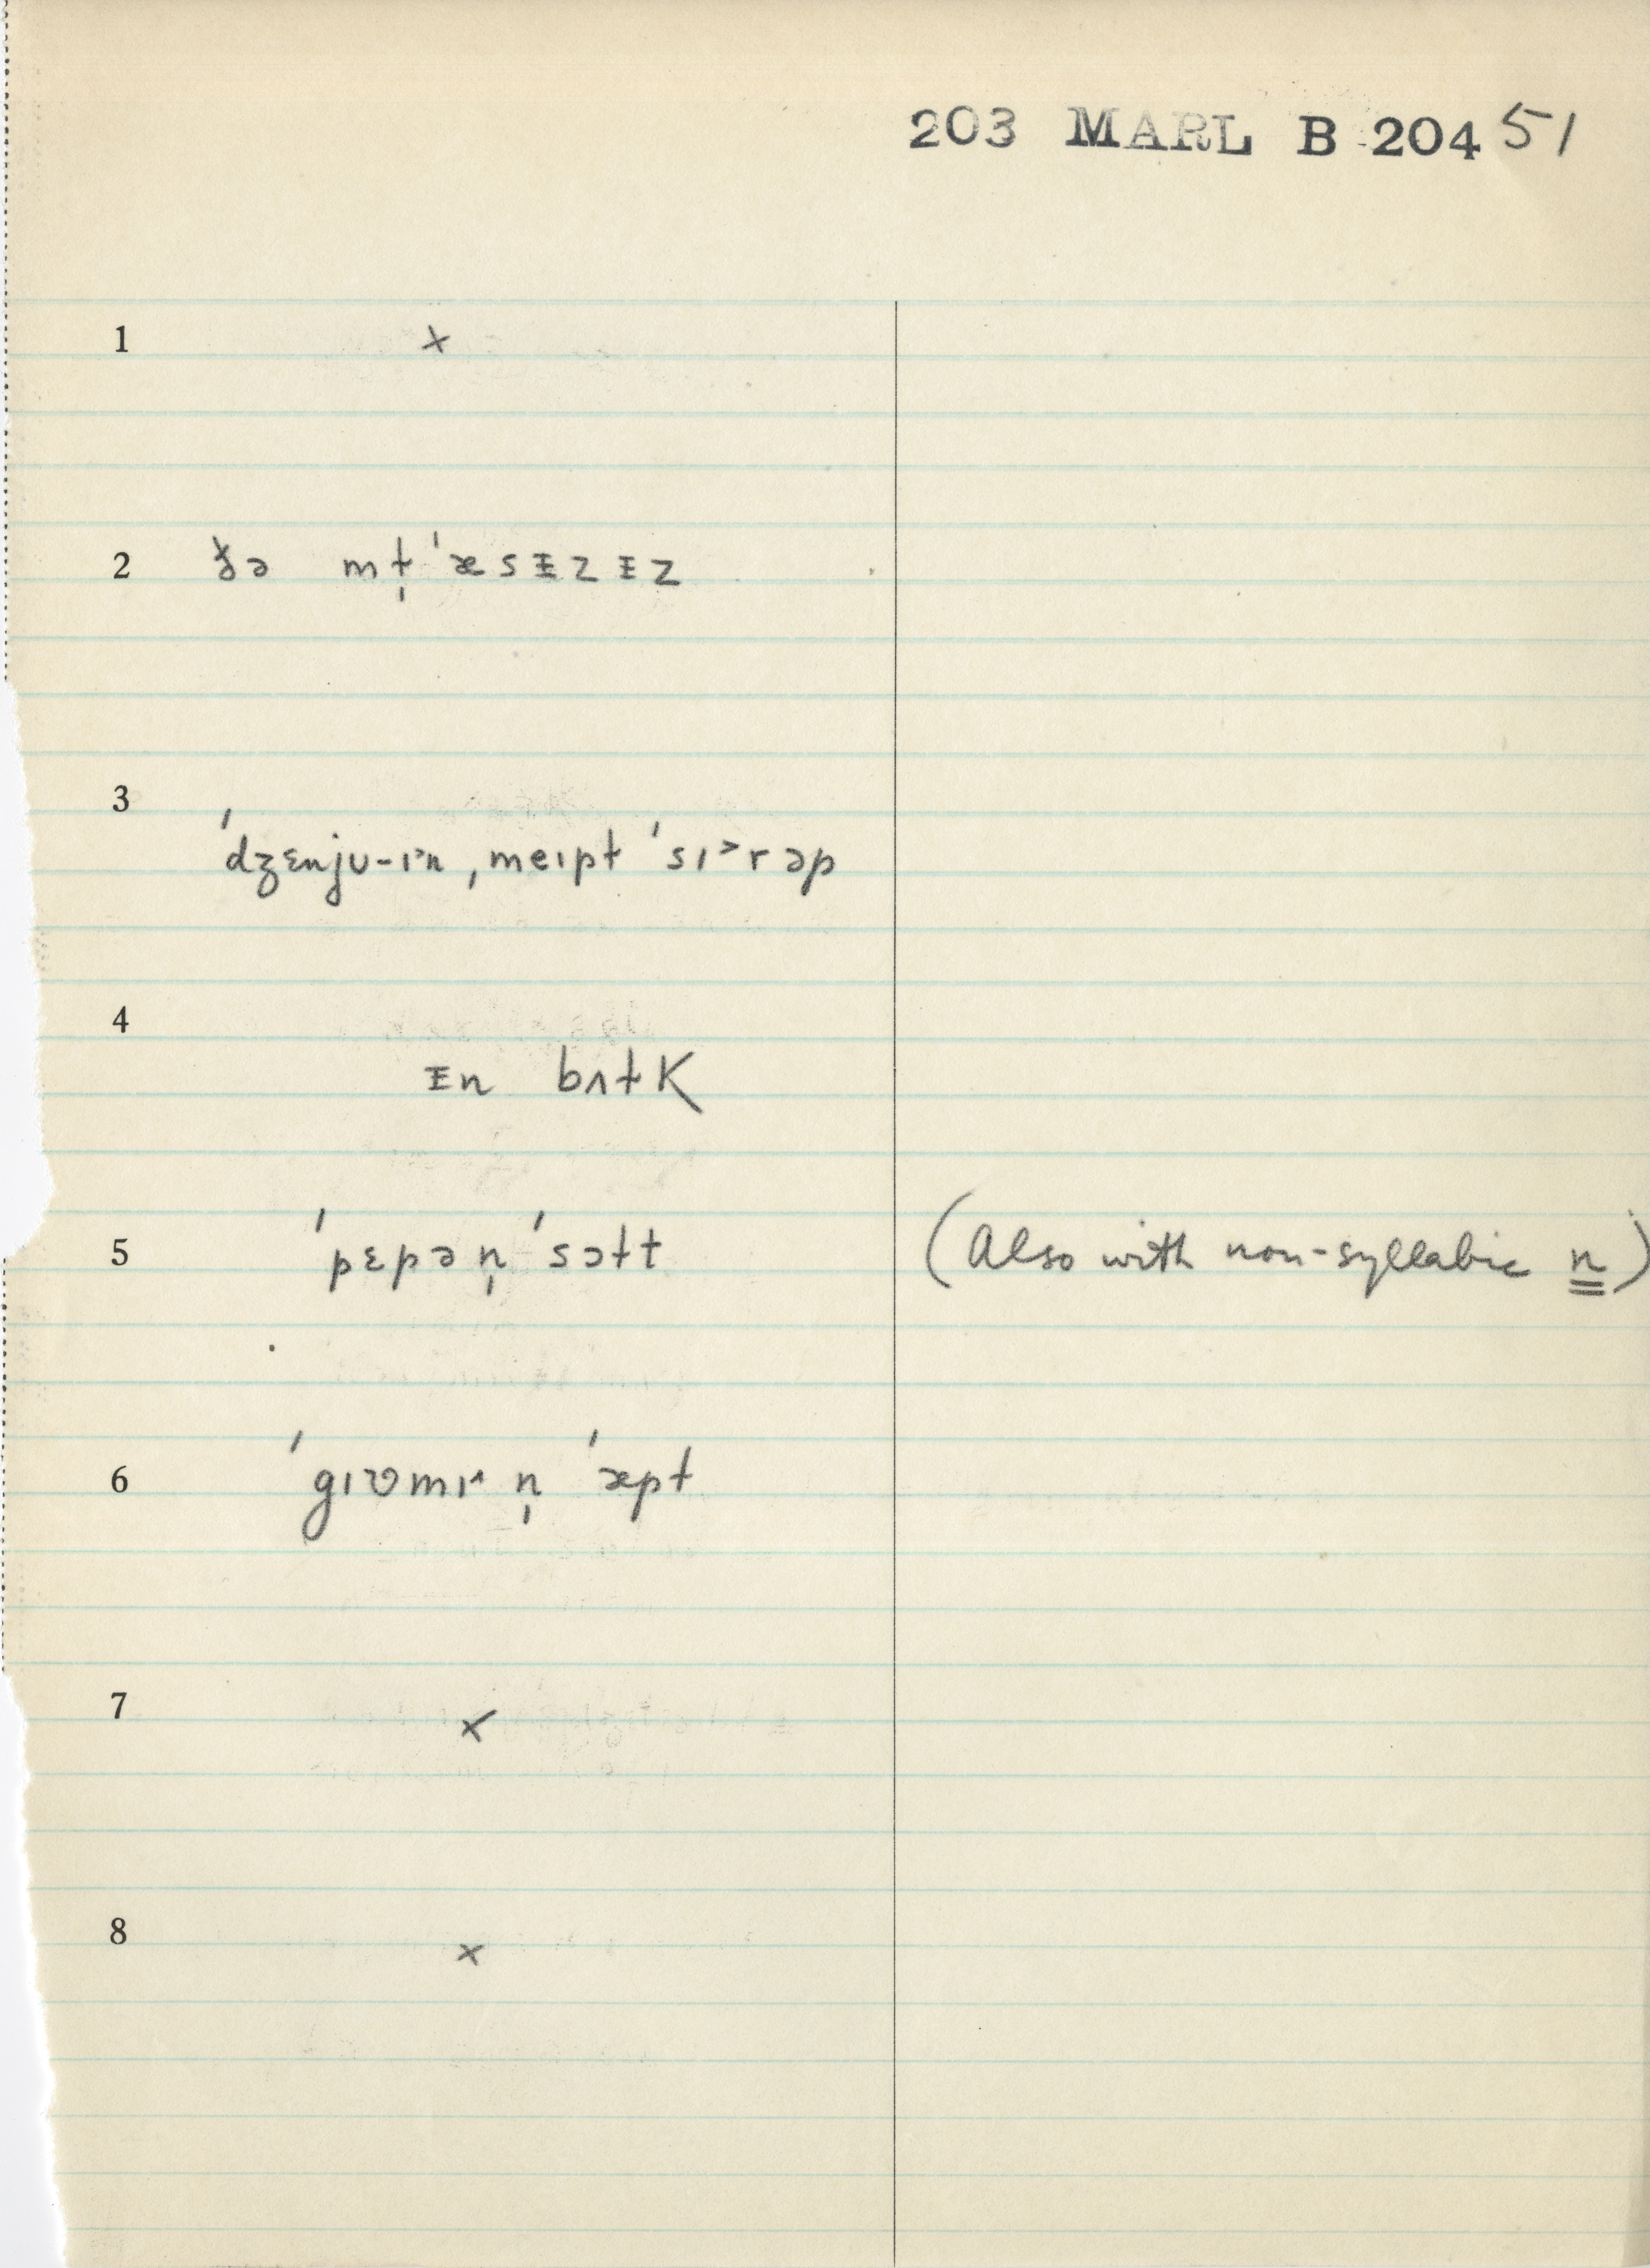 203 MARL B 204 51
1 ×
2 ðə mɫ̩ ˈæsᵻzᵻz
3 ˈdʒɛnjʊ-ɪ˃n, meɪpɫ ˈsɪ˃rəp
4 ᵻn bʌɫk
5 ˈpɛpə n̩ ˈsɔɫt (Also with non-syllabic n)
6 ˈgɪʊmɪ˄ n̩ ˈæpɫ
7 ×
8 ×